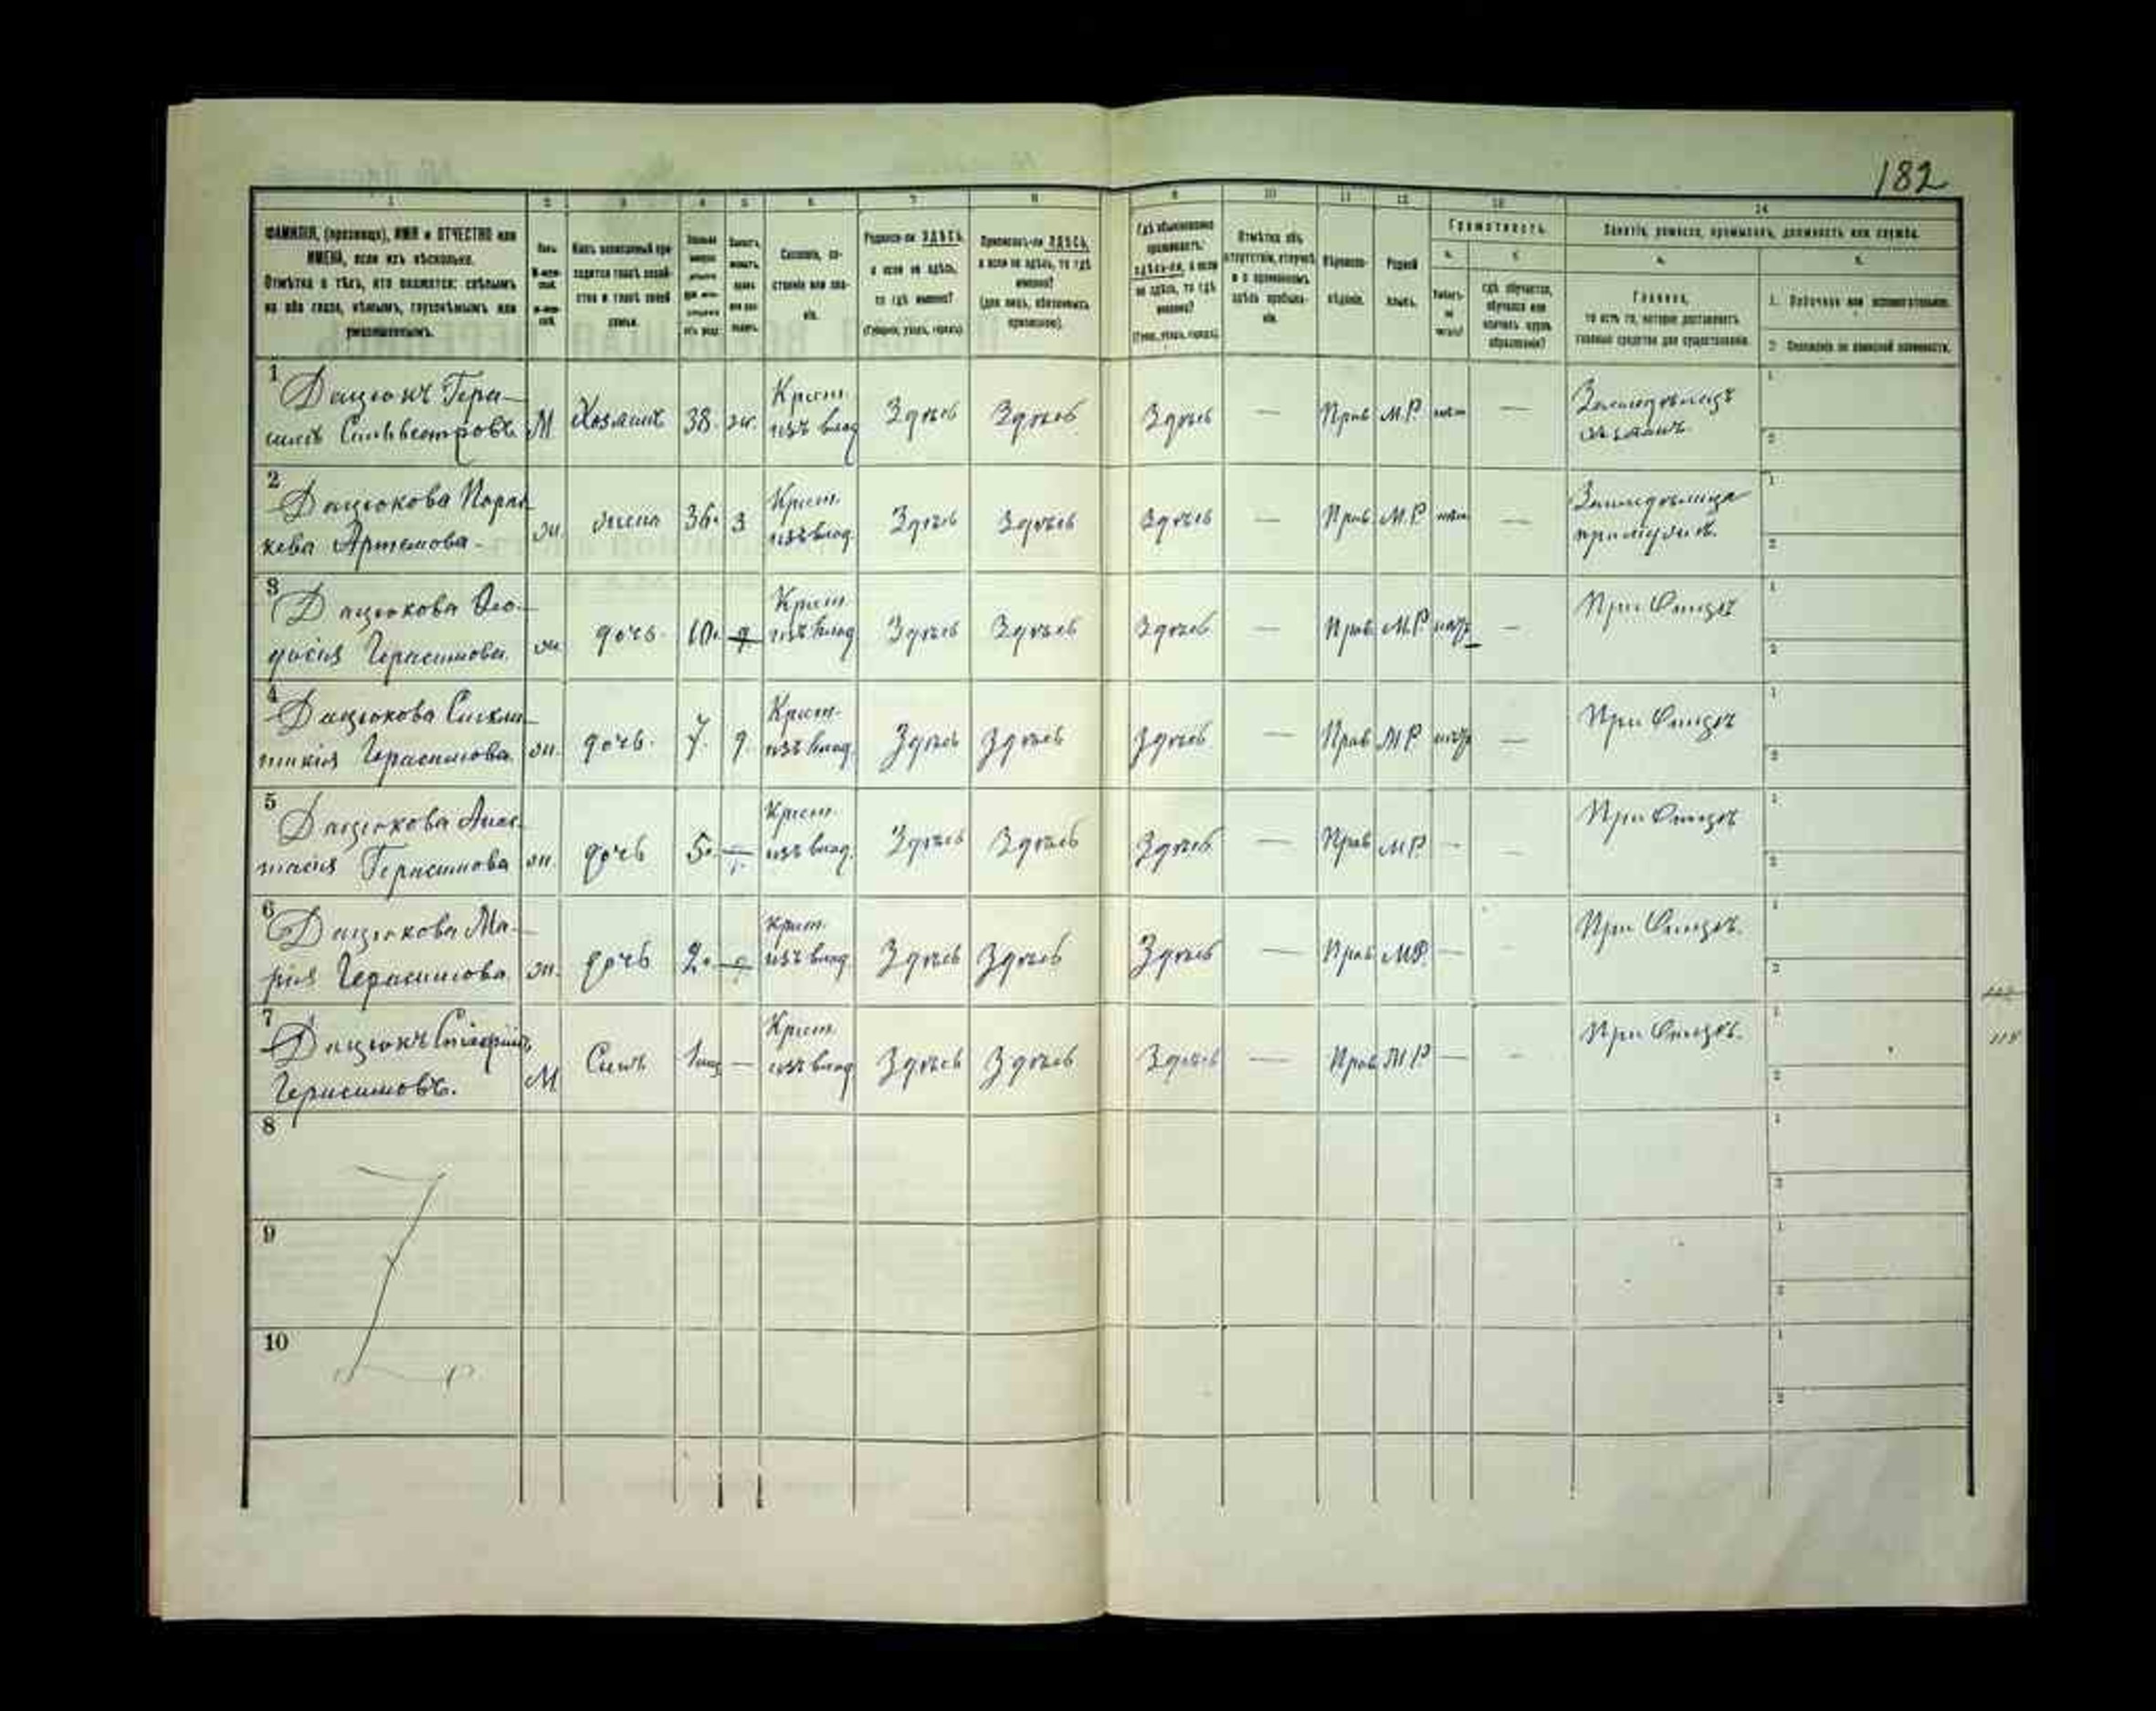 182
1 2 3 4 5 6 7 8 9 10 11 12 13 14
ФАМИЛІЯ, (прозвище), ИМЯ и ОТЧЕСТВО или
ИМЕНА, если ихъ нѣсколько.
Отмѣтка о тѣхъ, кто окажется: слѣпымъ
на оба глаза, нѣмымъ, глухонѣмымъ или
умалишеннымъ.
Полъ.
Какъ записанный при-
ходится главѣ хозяй-
ства и главѣ своей
семьи.
Сословіе, со-
стояніе или зва-
ніе.
Родился-ли ЗДѢСЬ,
а если не здѣсь,
то гдѣ именно?
(Губернія, уѣздъ, городъ).
Приписанъ-ли ЗДѢСЬ,
а если не здѣсь, то гдѣ
именно?
(для лицъ, обязанныхъ
припискою).
Гдѣ обыкновенно
проживаетъ:
здѣсь-ли, а если
не здѣсь, то гдѣ
именно?
(Губ., уѣздъ, городъ).
Отмѣтка объ
отсутствіи, отлучкѣ
и о временномъ
здѣсь пребыва-
ніи.
Вѣроиспо-
вѣданіе.
Родной
языкъ.
Грамотность.
а. б.
Умѣетъ-
ли
читать?
гдѣ обучается,
обучался или
кончилъ курсъ
образованія?
Занятіе, ремесло, промыселъ, должность или служба.
а. б.
Главное,
то есть то, которое доставляетъ
главныя средства для существованія.
1. Побочное или вспомогательное.
2. Положеніе по воинской повинности.
1 Дацюкъ Гера-
симъ Сильвестровъ М Хозяинъ 38. ж. Крест. изъ влад Здѣсь Здѣсь Здѣсь — Прав М.Р. нѣтъ — Земледѣлецъ
хозяинъ 1 2
2 Дацюкова Парас-
кева Артемова ж. жена 36. з Крест. изъ влад. Здѣсь Здѣсь Здѣсь — Прав. М.Р нѣтъ — Земледѣлица
при мужѣ 1 2
3 Дацюкова Ѳео-
досія Герасимова. ж дочь. 10. Крест. изъ влад Здѣсь Здѣсь Здѣсь — Прав М.Р — При Отцѣ 1 2
4 Дацюкова Синкли-
тикія Герасимова. ж. дочь. 7. д. Крест- изъ влад. Здѣсь Здѣсь Здѣсь — Прав М.Р. — При Отцѣ 1 2
5 Дацюкова Анас-
тасія Герасимова ж. дочь 5. Крест. изъ влад. Здѣсь Здѣсь Здѣсь — Прав М.Р. — — При Отцѣ 1 2
6 Дацюкова Ма-
рія Герасимова ж. дочь 2. Крест. изъ влад Здѣсь Здѣсь Здѣсь — Прав М.Р. — - При Отцѣ. 1 2
7 Дацюкъ
Герасимовъ. М Сынъ — Крест. изъ влад Здѣсь Здѣсь Здѣсь — Прав М.Р — - При Отцѣ. 1 2
8 1 2
9 1 2
10 1 2